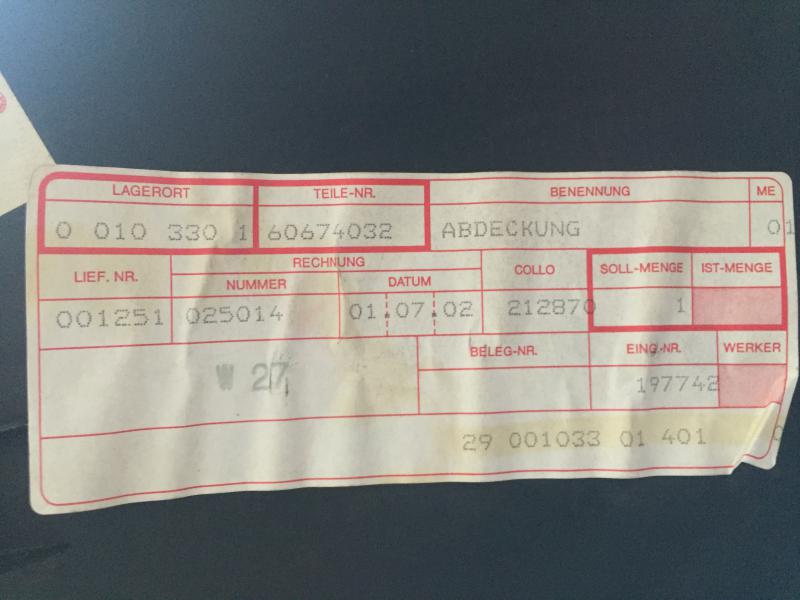 LAGERORT TEILE-NR. BENENNUNG ME
0 010 330 1 60674032 ABDECKUNG 01
LIEF. NR. RECHNUNG COLLO SOLL-MENGE IST-MENGE
NUMMER DATUM
001251 025014 01.07.02 212870 1
BELEG-NR. EING.-NR. WERKER
W 27 197742
29 001033 01 401